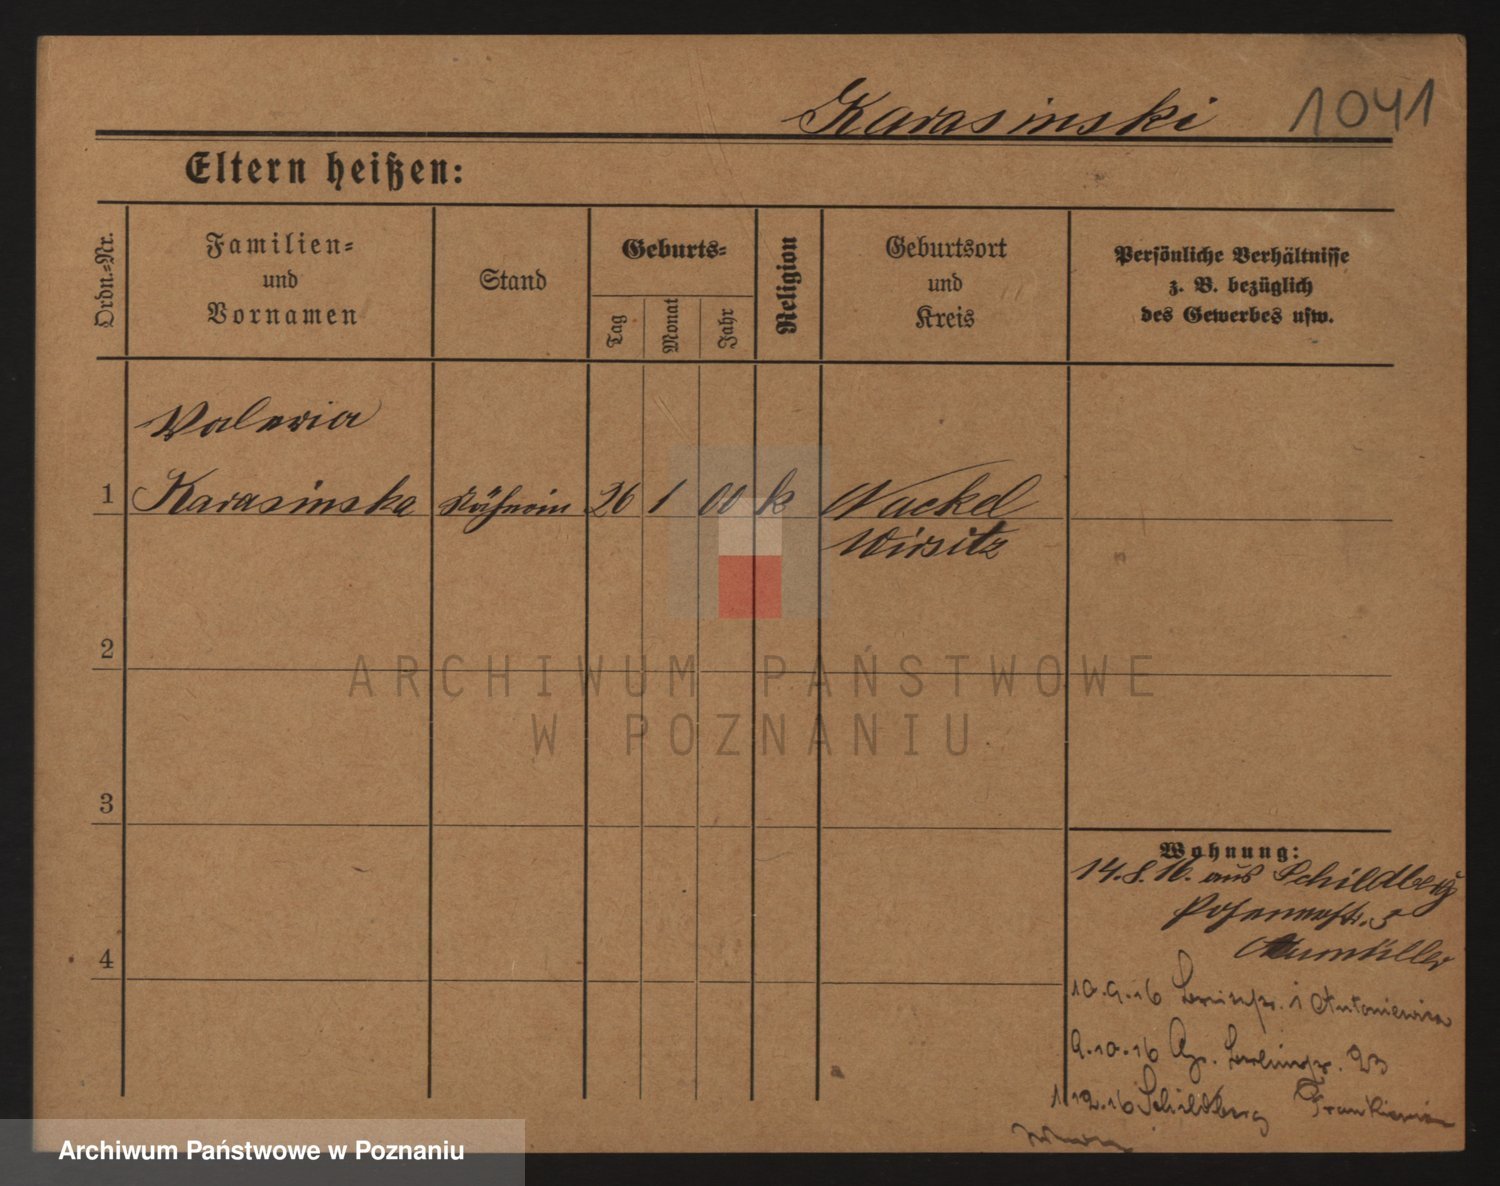 Karasinski 1041
Eltern heißen:
Ordn.=Nr.
Familien=
und
Vornamen
Stand
Geburts=
Tag
Monat
Jahr
Religion
Geburtsort
und
Kreis
Persönliche Verhältnisse
z. B. bezüglich
des Gewerbes usw.
Valeria
1 Karasinska Näherin 26 1 00 k Nackel
Wirsitz
2
ARCHIWUM PAŃSTWOWE
W POZNANIU
3
Wohnung:
14.8.16. aus Schildberg
Posenerstr. 3
Aumüller
10.9.16 1 Antoniewicz
9.10.16 23
1 12.16 Schildberg
4
Archiwum Państwowe w Poznaniu